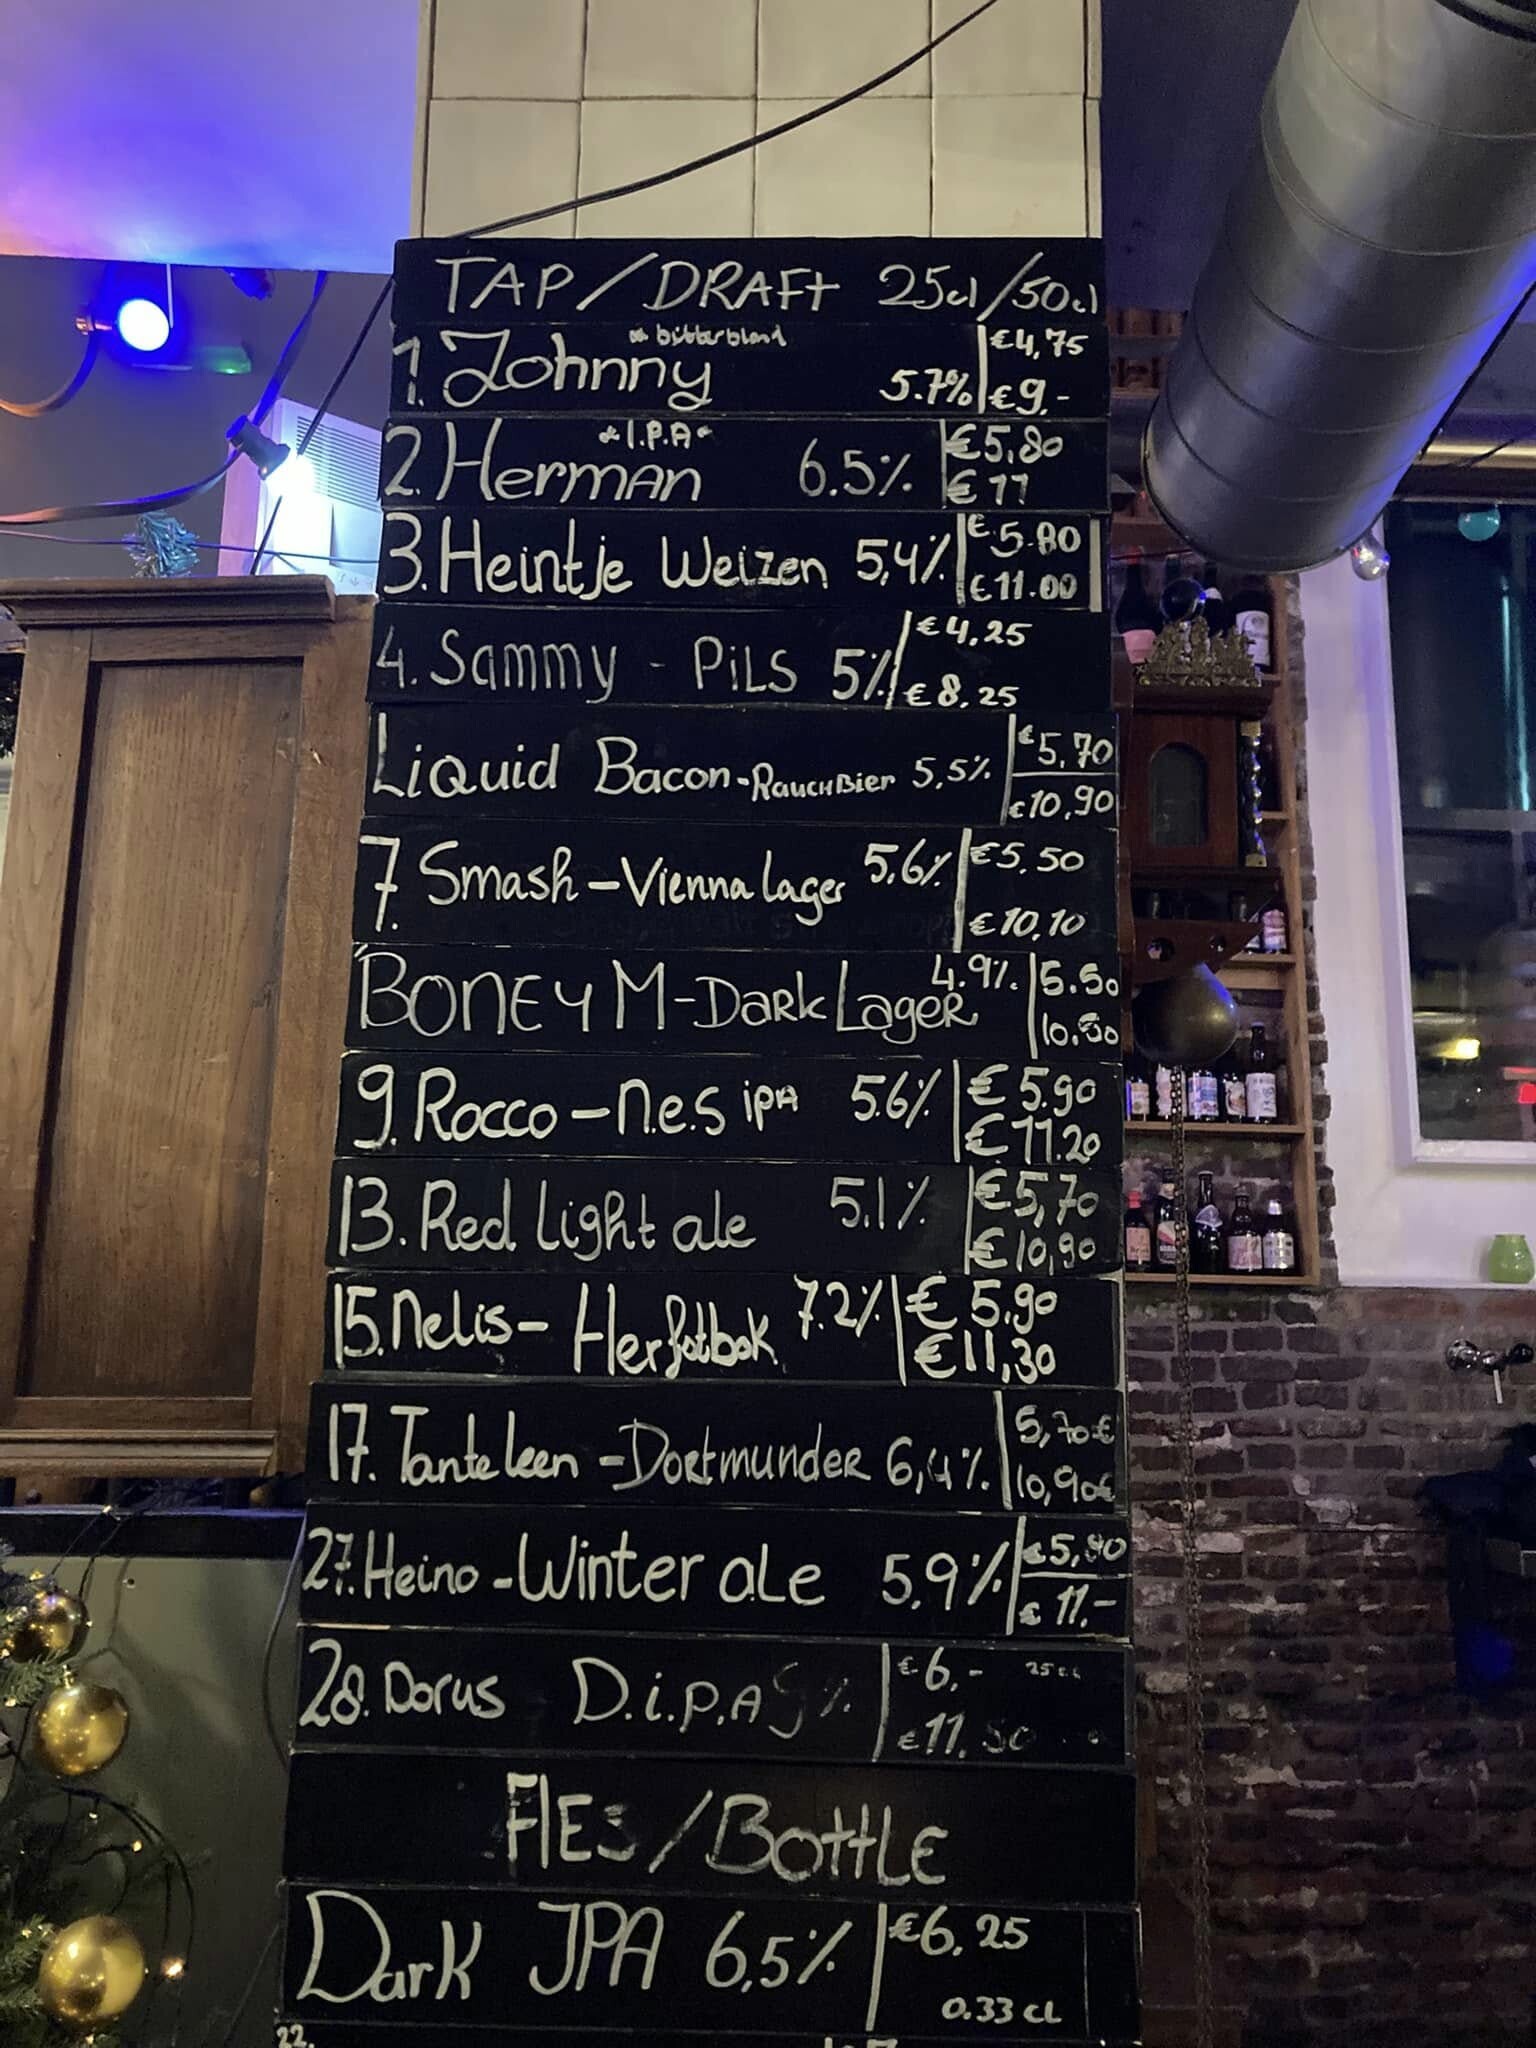 TAP/DRAFT 25cl/50cl
1. Johnny bitterblond 5.7% €4,75
€9.-
2. Herman *I.P.A* 6.5% €5,80
€11
3. Heintje Weizen 5,4% €5.80
€11.00
4. Sammy - PiLS 5% €4,25
€8,25
Liquid Bacon - RauchBier 5,5% €5,70
€10,90
7. Smash - Vienna lager 5.6% €5,50
€10,10
BONEY M - Dark Lager 4.9% 5.50
10.50
9. Rocco - n.e.s ipA 5.6% €5.90
€11.20
13. Red light ale 5.1% €5,70
€10,90
15. Nelis - Herfstbok 7.2% €5.90
€11,30
17. Tante Leen - Dortmunder 6,4% 5,70€
10,90€
27. Heino - Winter ale 5.9% €5,80
€11.-
28. Dorus D.i.p.A % €6.- 25cl
€11.50
FlEs/BottLE
Dark IPA 6,5% €6.25
0.33 cl
22.